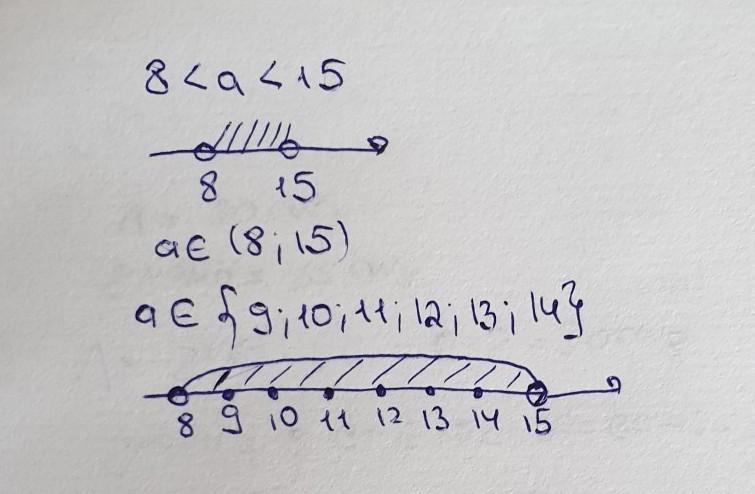 8 < a < 15
8 15
a ∈ (8; 15)
a ∈ {9; 10; 11; 12; 13; 14}
8 9 10 11 12 13 14 15